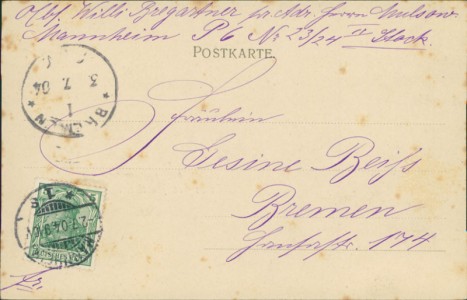 Abs. Willi Irrgartner pr. Adr. Herrn
Mannheim P6 No 23/24 II Stock.
POSTKARTE.
3.7.04
BREMEN
Fräulein
Gesine Beiss
Bremen
Hansastr. 174